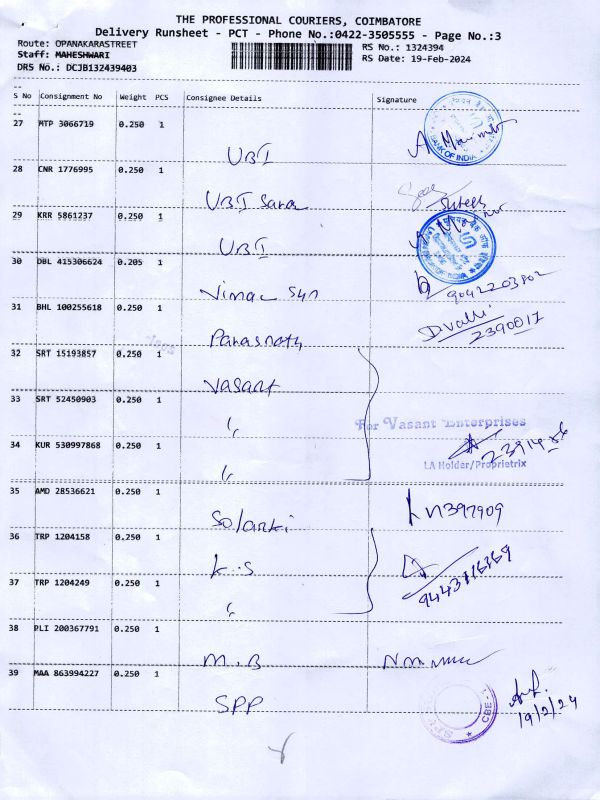 THE PROFESSIONAL COURIERS, COIMBATORE
Delivery Runsheet - PCT - Phone No.:0422-3505555 - Page No.:3
Route: OPANAKARASTREET
RS No.: 1324394
Staff: MAHESHWARI
RS Date: 19-Feb-2024
DRS No.: DCJB132439403
S No Consignment No Weight PCS Consignee Details Signature
27 MTP 3066719 0.250 1
UBI
BANK OF INDIA
28 CNR 1776995 0.250 1
UBI Sara
Suresh
29 KRR 5861237 0.250 1
UBI
30 DBL 415306624 0.205 1
Vimal Sun
9042203802
31 BHL 100255618 0.250 1
Parasnath
D valli
2390017
32 SRT 15193857 0.250 1
Vasant
33 SRT 52450903 0.250 1
"
For Vasant Enterprises
34 KUR 530997868 0.250 1
"
LA Holder/Proprietrix
35 AMD 28536621 0.250 1
Solanki
397909
36 TRP 1204158 0.250 1
K.S
37 TRP 1204249 0.250 1
"
38 PLI 200367791 0.250 1
M.B
39 MAA 863994227 0.250 1
SPP
CBE
19/2/24